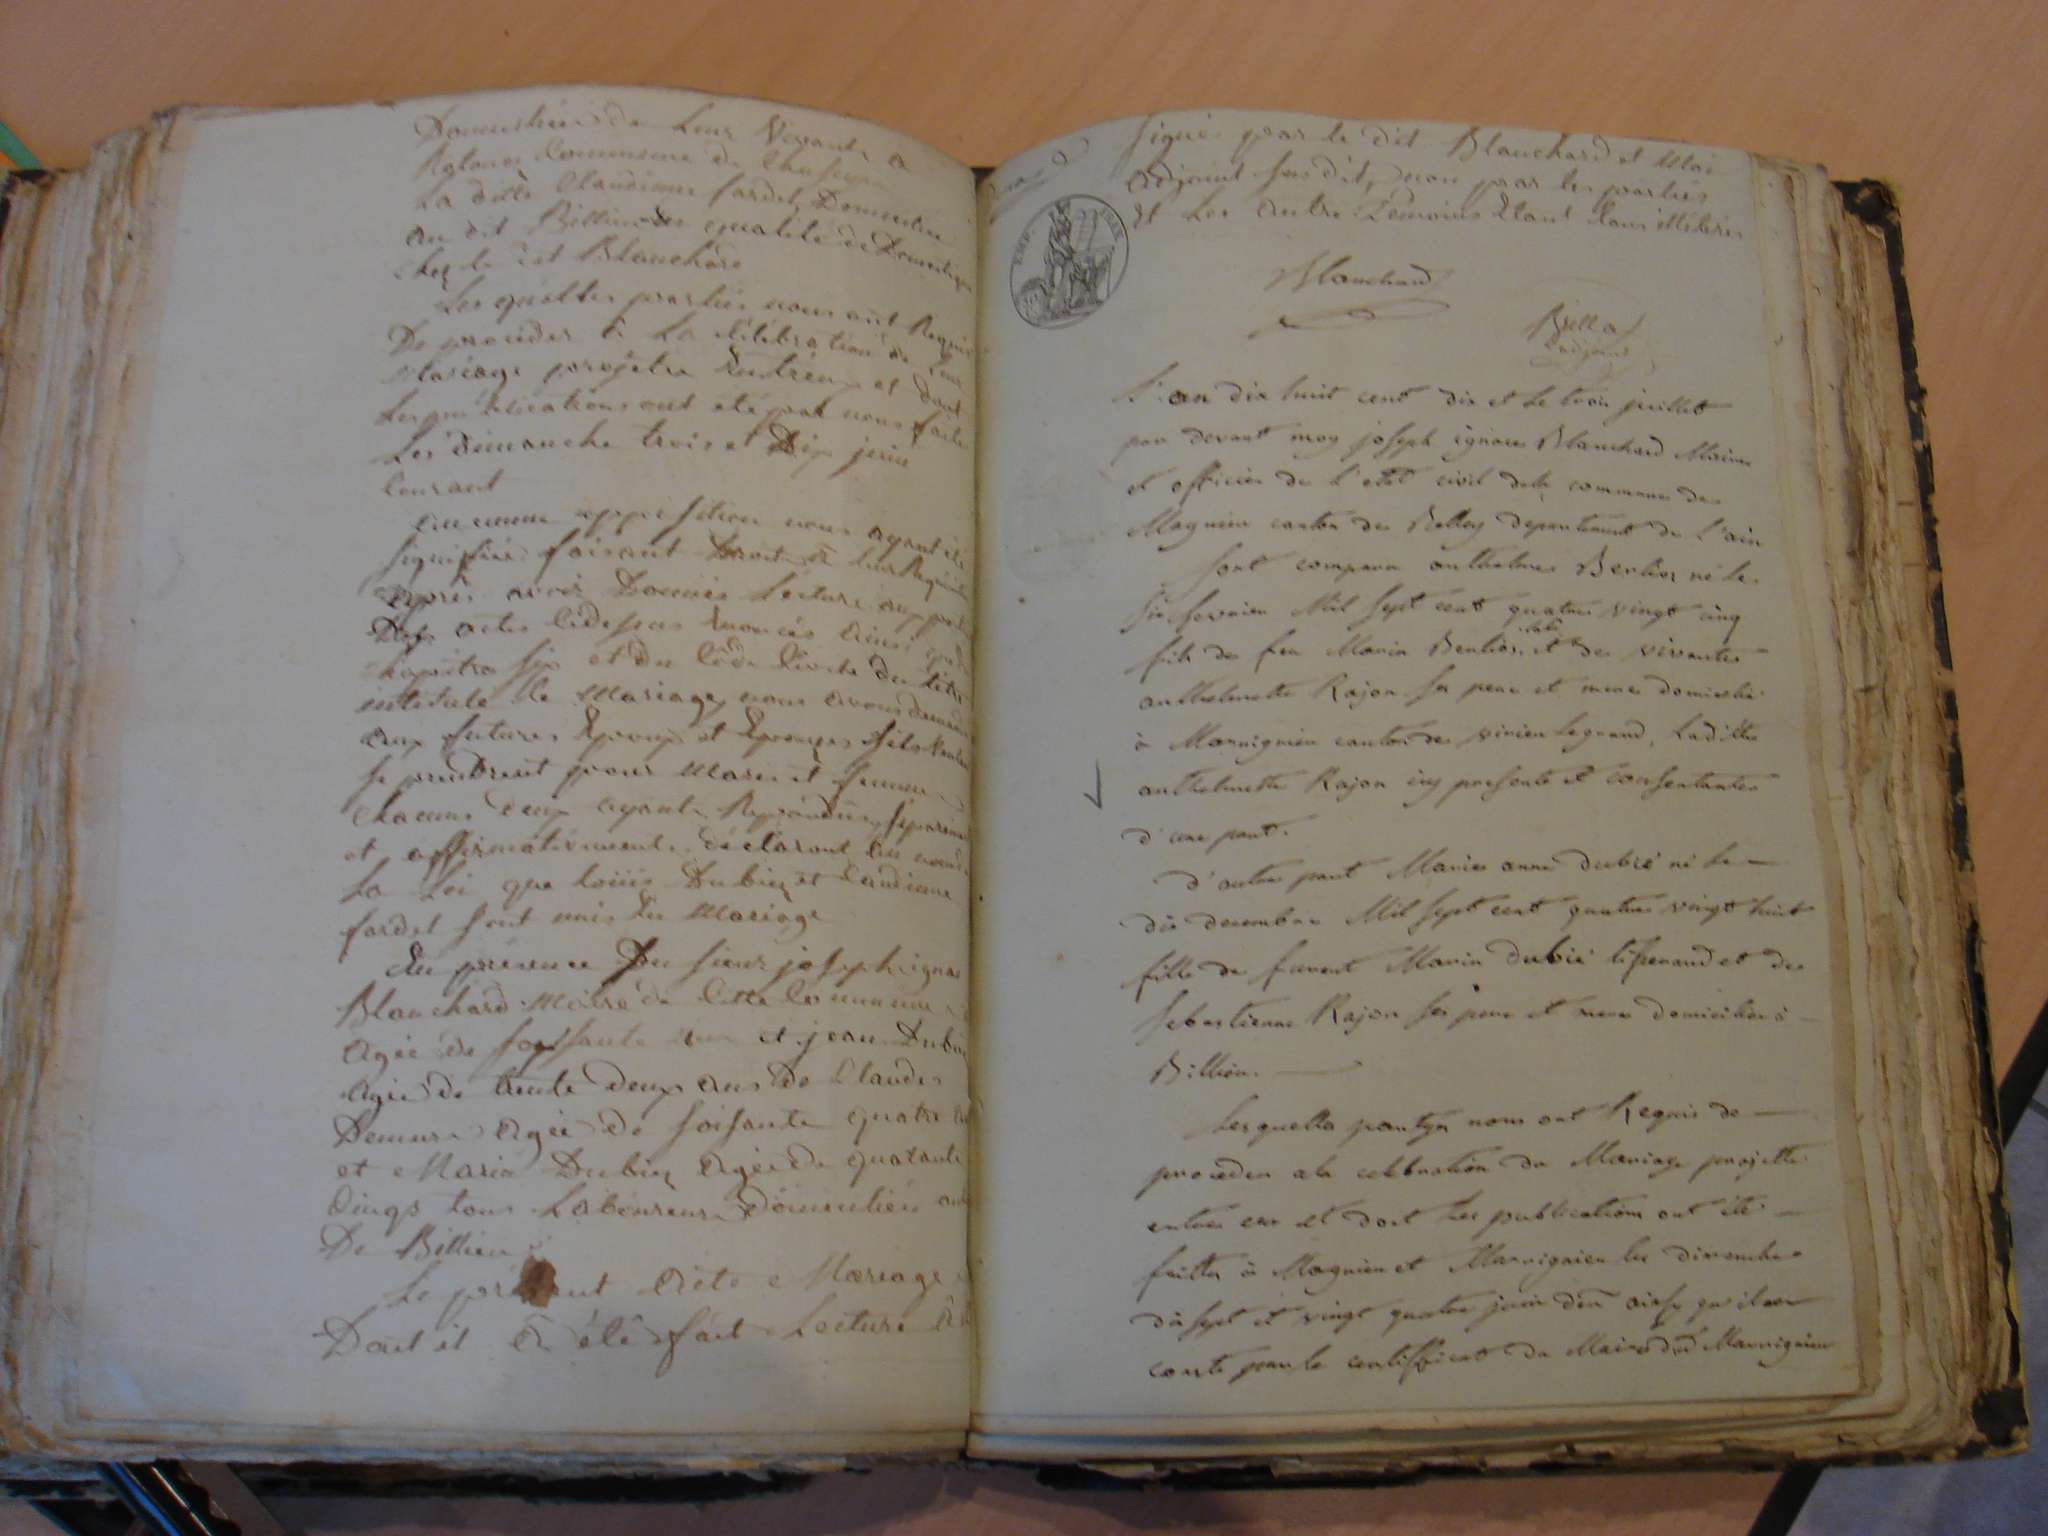 Domiciliés de leur Vivant a
commune de
La ditte Claudine fardel, Domiciliée
au dit Billieu en qualité de Domestique
chez le dit Blanchard
Lesquelles parties nous ont Requis
De proceder à La Célébration de leur
Mariage projetée Entr'eux et dont
Les publications ont été par nous faite
Les Dimanche trois et Dix juin
Courant
aucunne opposition nous ayant été
signiffiée faisant Droit à leur Requisit
après avoir Donnée Lecture
Des actes Cidessus Enoncés ainsi que du
chapitre six et du Code Civile du titre
intitulé le Mariage, nous avons demandé
aux futures Epoux et Epouzes s'ils veulent
se prendre pour Maris et femme
chacuns deux ayants Répondus, séparément
et affirmativement, déclaront au nom de
La Loi que louis Dubiez et Claudine
fardel sont unis En Mariage
En présence Du sieur joseph ignace
Blanchard Maire de Cette Commune
Agée de soissante un et jean Dubiez
agée de trente deux ans de Claudes
Demeure agée de soisante quatre
et Marin Dubiez agée de quarante
Cinqs tous Laboureurs Domiciliés au
De Billieu
Le présent Acte Mariage
Dont il à été fait Lecture à
signé par le dit Blanchard et Moi
adjoint susdit, non par les parties
Et Les Autre Témoins Etant tous illétérés
Blanchard
Brilla
adjoint
EMP. FRAN.
L'an dix huit cent dix et le trois juillet
par devant moy joseph ignace Blanchard Maire
et officier de l'etat civil de la commune de
Magnieu canton de Belley departement de l'ain
sont comparu anthelme Berlioz né le
six fevrier Mil sept cent quatre vingt cinq
fils de feu Marin Berlioz et de vivante
anthelmette Rajon ses pere et mere domicilié
à Marignieu canton de virieu le grand, Laditte
anthelmette Rajon icy presente et consentante
d'une part.
d'autre part Marie anne dubié né le —
dix decembre Mil sept cent quatre vingt huit
fille de furent Marin dubié tisserand et de
Sebastienne Rajon ses pere et mere domiciliés à —
Billieu. —
Lesquelles partyes nous ont Requis de —
proceder a la celebration du Mariage projetté
entre eux et dont les publications ont été —
faittes à Magnieu et Marignieu les dimenche
dix sept et vingt quatre juin dern ainsy qu'il en
conste par le certifficat du Maire dud Marignieu